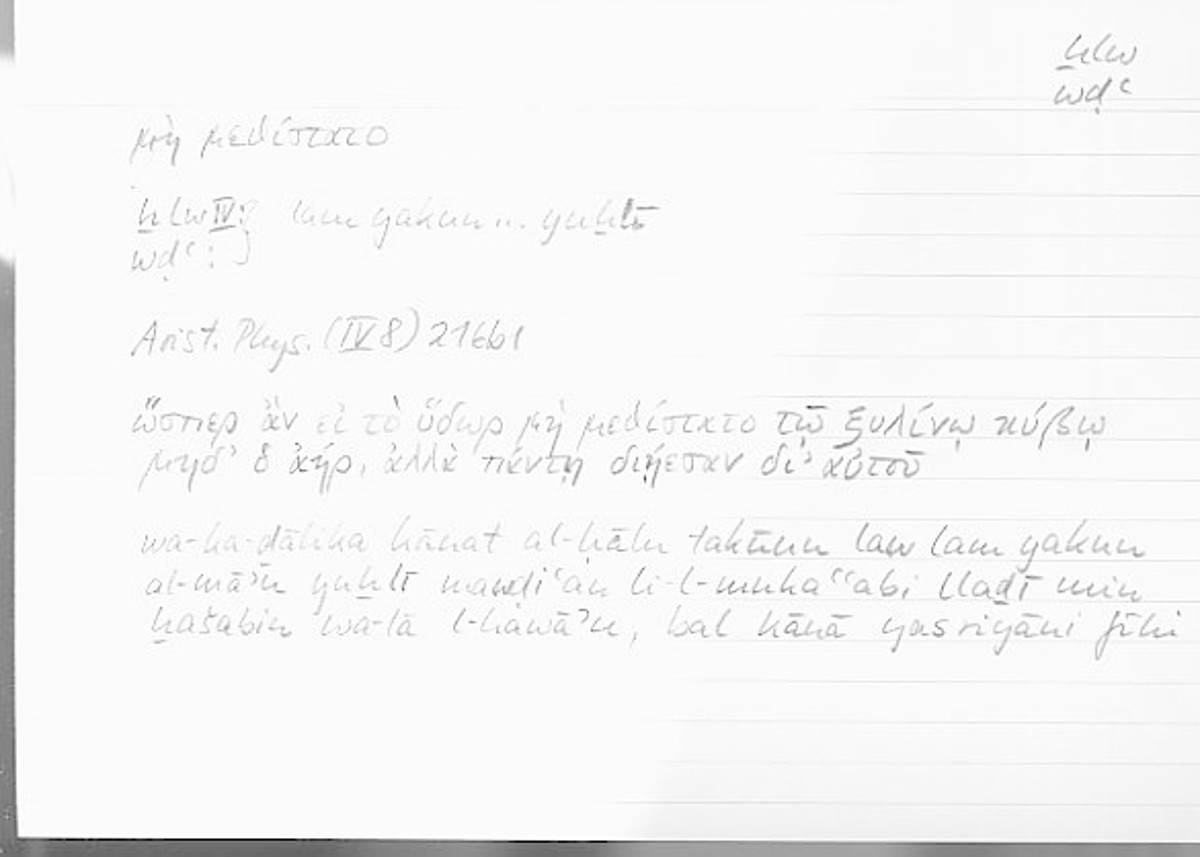 ḫlw
wḍʿ
μὴ μεθίστατο
ḫlw IV: } lam yakun ... yuḫlī
wḍʿ : }
Arist. Phys. (IV 8) 216b1
ὥσπερ ἂν εἰ τὸ ὕδωρ μὴ μεθίστατο τῷ ξυλίνῳ κύβῳ
μηδ' ὁ ἀήρ, ἀλλὰ πάντῃ διῄεσαν δι' αὐτοῦ
wa-ka-ḏālika kānat al-ḥālu takūnu law lam yakun
al-māʾu yuḫlī mawḍiʿan li-l-mukaʿʿabi llaḏī min
ḫašabin wa-lā l-hawāʾu, bal kānā yasriyāni fīhi